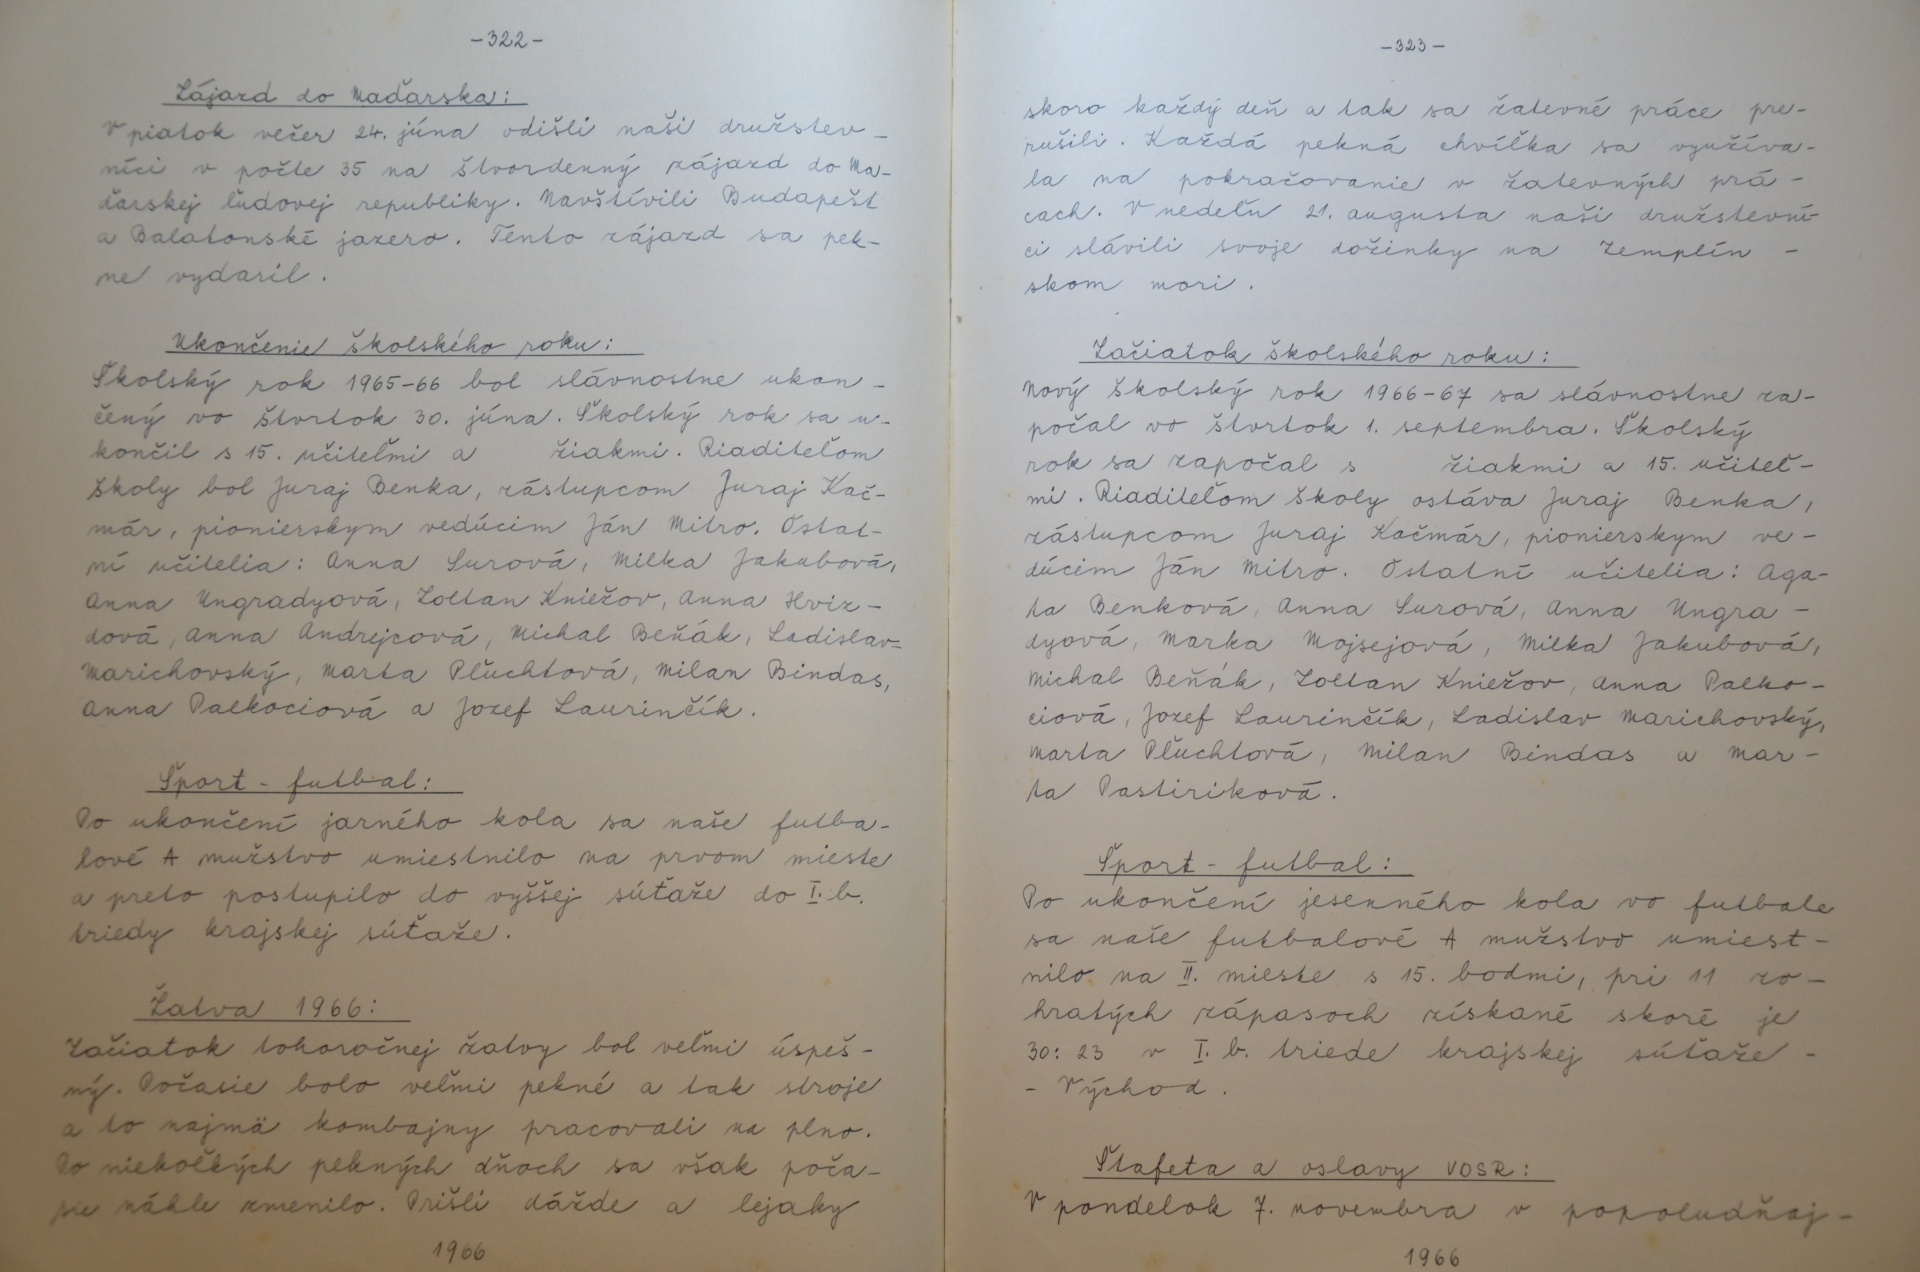 -322-
Zájazd do Maďarska:
V piatok večer 24. júna odišli naši družstev-
níci v počte 35 na štvordenný zájazd do Ma-
ďarskej ľudovej republiky. Navštívili Budapešt
a Balatonské jazero. Tento zájazd sa pek-
ne vydaril.
Ukončenie školského roku:
Školský rok 1965-66 bol slávnostne ukon-
čený vo štvrtok 30. júna. Školský rok sa u-
končil s 15. učiteľmi a žiakmi. Riaditeľom
školy bol Juraj Benka, zástupcom Juraj Kač-
már, pionierskym vedúcim Ján Mitro. Ostat-
ní učitelia: Anna Surová, Milka Jakubová,
Anna Ungradyová, Zoltan Kniežov, Anna Hviz-
dová, Anna Andrejcová, Michal Beňák, Ladislav
Marichovský, Marta Pľuchtová, Milan Bindas,
Anna Palkociová a Jozef Laurinčík.
Šport - futbal:
Po ukončení jarného kola sa naše futba-
lové A mužstvo umiestnilo na prvom mieste
a preto postupilo do vyššej súťaže do I. b.
triedy krajskej súťaže.
Žatva 1966:
Začiatok tohoročnej žatvy bol veľmi úspeš-
ný. Počasie bolo veľmi pekné a tak stroje
a to najmä kombajny pracovali na plno.
Po niekoľkých pekných dňoch sa však poča-
sie náhle zmenilo. Prišli dážde a lejaky
1966
-323-
skoro každý deň a tak sa žatevné práce pre-
rušili. Každá pekná chvíľka sa využíva-
la na pokračovanie v žatevných prá-
cach. V nedeľu 21. augusta naši družstevní-
ci slávili svoje dožinky na Zemplín-
skom mori.
Začiatok školského roku:
Nový školský rok 1966-67 sa slávnostne za-
počal vo štvrtok 1. septembra. Školský
rok sa započal s žiakmi a 15. učiteľ-
mi. Riaditeľom školy ostáva Juraj Benka,
zástupcom Juraj Kačmár, pionierskym ve-
dúcim Ján Mitro. Ostatní učitelia: Aga-
ta Benková, Anna Surová, Anna Ungra-
dyová, Marka Mojsejová, Milka Jakubová,
Michal Beňák, Zoltan Kniežov, Anna Palko-
ciová, Jozef Laurinčík, Ladislav Marichovský,
Marta Pľuchtová, Milan Bindas a Mar-
ta Pastiriková.
Šport - futbal:
Po ukončení jesenného kola vo futbale
sa naše futbalové A mužstvo umiest-
nilo na II. mieste s 15. bodmi, pri 11 zo-
hratých zápasoch získané skoré je
30:23 v I. b. triede krajskej súťaže -
- Východ.
Štafeta a oslavy VOSR:
V pondelok 7. novembra v popoludňaj-
1966